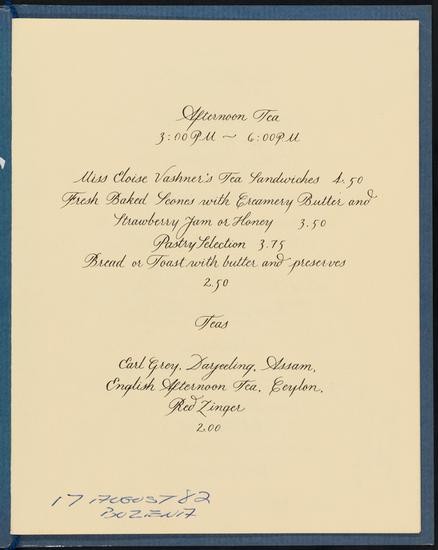 Afternoon Tea
3:00 PM ~ 6:00 PM
Miss Eloise Vashner's Tea Sandwiches 4.50
Fresh Baked Scones with Creamery Butter and
Strawberry Jam or Honey 3.50
Pastry Selection 3.75
Bread or Toast with butter and preserves
2.50
Teas
Earl Grey, Darjeeling, Assam,
English Afternoon Tea, Ceylon,
Red Zinger
2.00
17 AUGUST 82
BOZENA